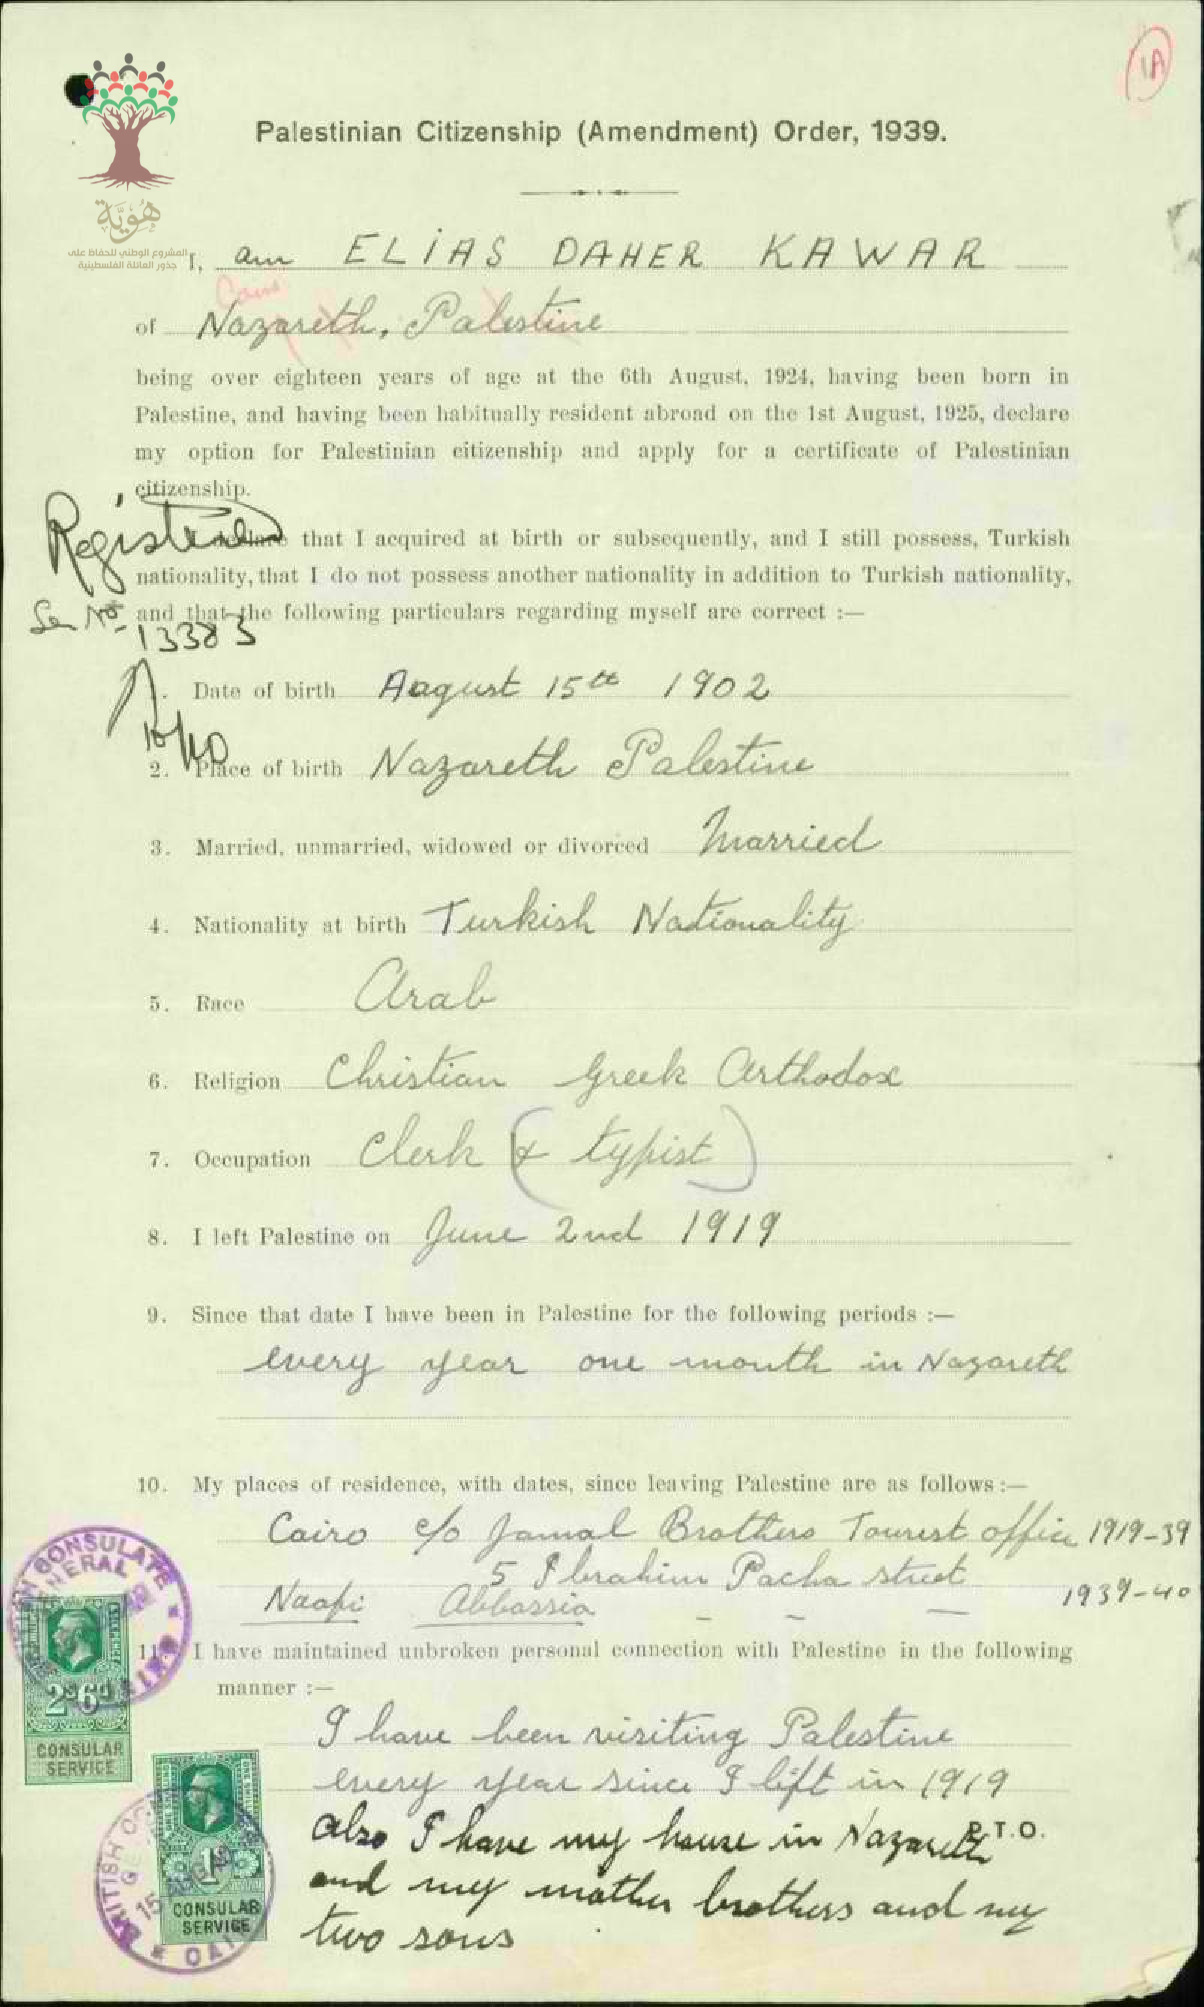 1A
هُوِيَّة
المشروع الوطني للحفاظ على
جذور العائلة الفلسطينية
Palestinian Citizenship (Amendment) Order, 1939.
I, am ELIAS DAHER KAWAR
Cairo
of Nazareth, Palestine
being over eighteen years of age at the 6th August, 1924, having been born in
Palestine, and having been habitually resident abroad on the 1st August, 1925, declare
my option for Palestinian citizenship and apply for a certificate of Palestinian
citizenship.
Registered
declare that I acquired at birth or subsequently, and I still possess, Turkish
nationality, that I do not possess another nationality in addition to Turkish nationality,
and that the following particulars regarding myself are correct :—
Ser No. 13383
1. Date of birth August 15th 1902
2. Place of birth Nazareth Palestine
3. Married, unmarried, widowed or divorced Married
4. Nationality at birth Turkish Nationality
5. Race Arab
6. Religion Christian Greek Orthodox
7. Occupation Clerk (& typist)
8. I left Palestine on June 2nd 1919
9. Since that date I have been in Palestine for the following periods :—
every year one month in Nazareth
10. My places of residence, with dates, since leaving Palestine are as follows :—
Cairo c/o Jamal Brothers Tourest office 1919-39
5 Ibrahim Pacha street
Naafi Abbassia - - - 1939-40
11. I have maintained unbroken personal connection with Palestine in the following
manner :—
I have been visiting Palestine
every year since I lift in 1919
also I have my house in Nazareth
P.T.O.
and my mother brothers and my
two sons
BRITISH CONSULATE GENERAL
CAIRO
2s6d
CONSULAR
SERVICE
BRITISH
15
CAIRO
1/-
CONSULAR
SERVICE